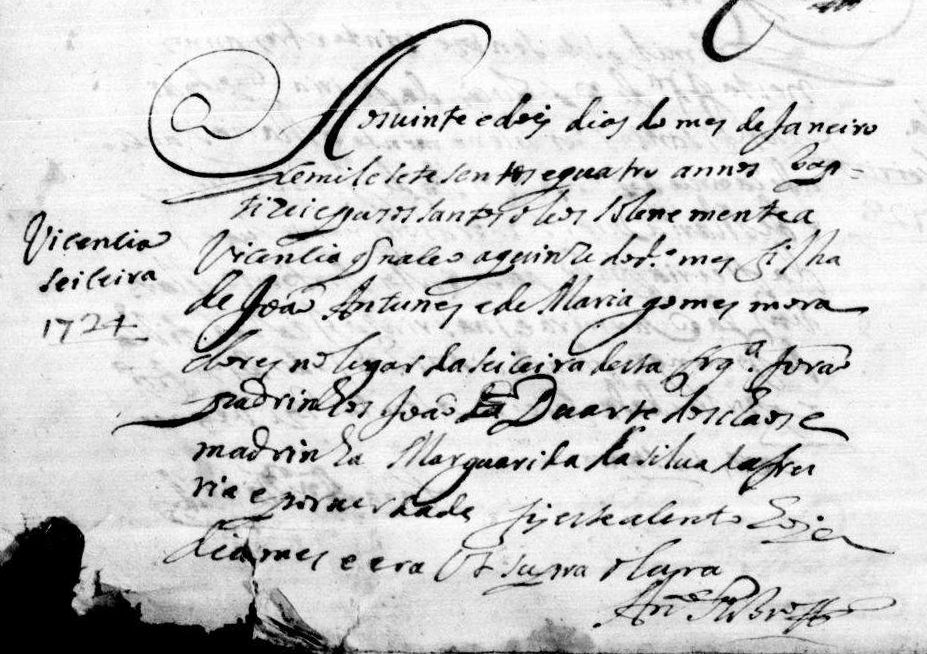 Vicencia
seiceira
1724
Aos vinte e dois dias do mes de Janeiro
de mil e sete sentos e quatro annos bap=
tizei e pus os santos oleos solene mente a
Vicencia q̃ naceo a quinze do d.º mes filha
de João Antunes e de Maria gomes mora
dores no lugar da seiceira desta frg.ª forão
padrinhos João Duarte dos
madrinha Marguarida da silua da frei
ria e por uerdade fis este asento hoje
dia mes e era Ut supra